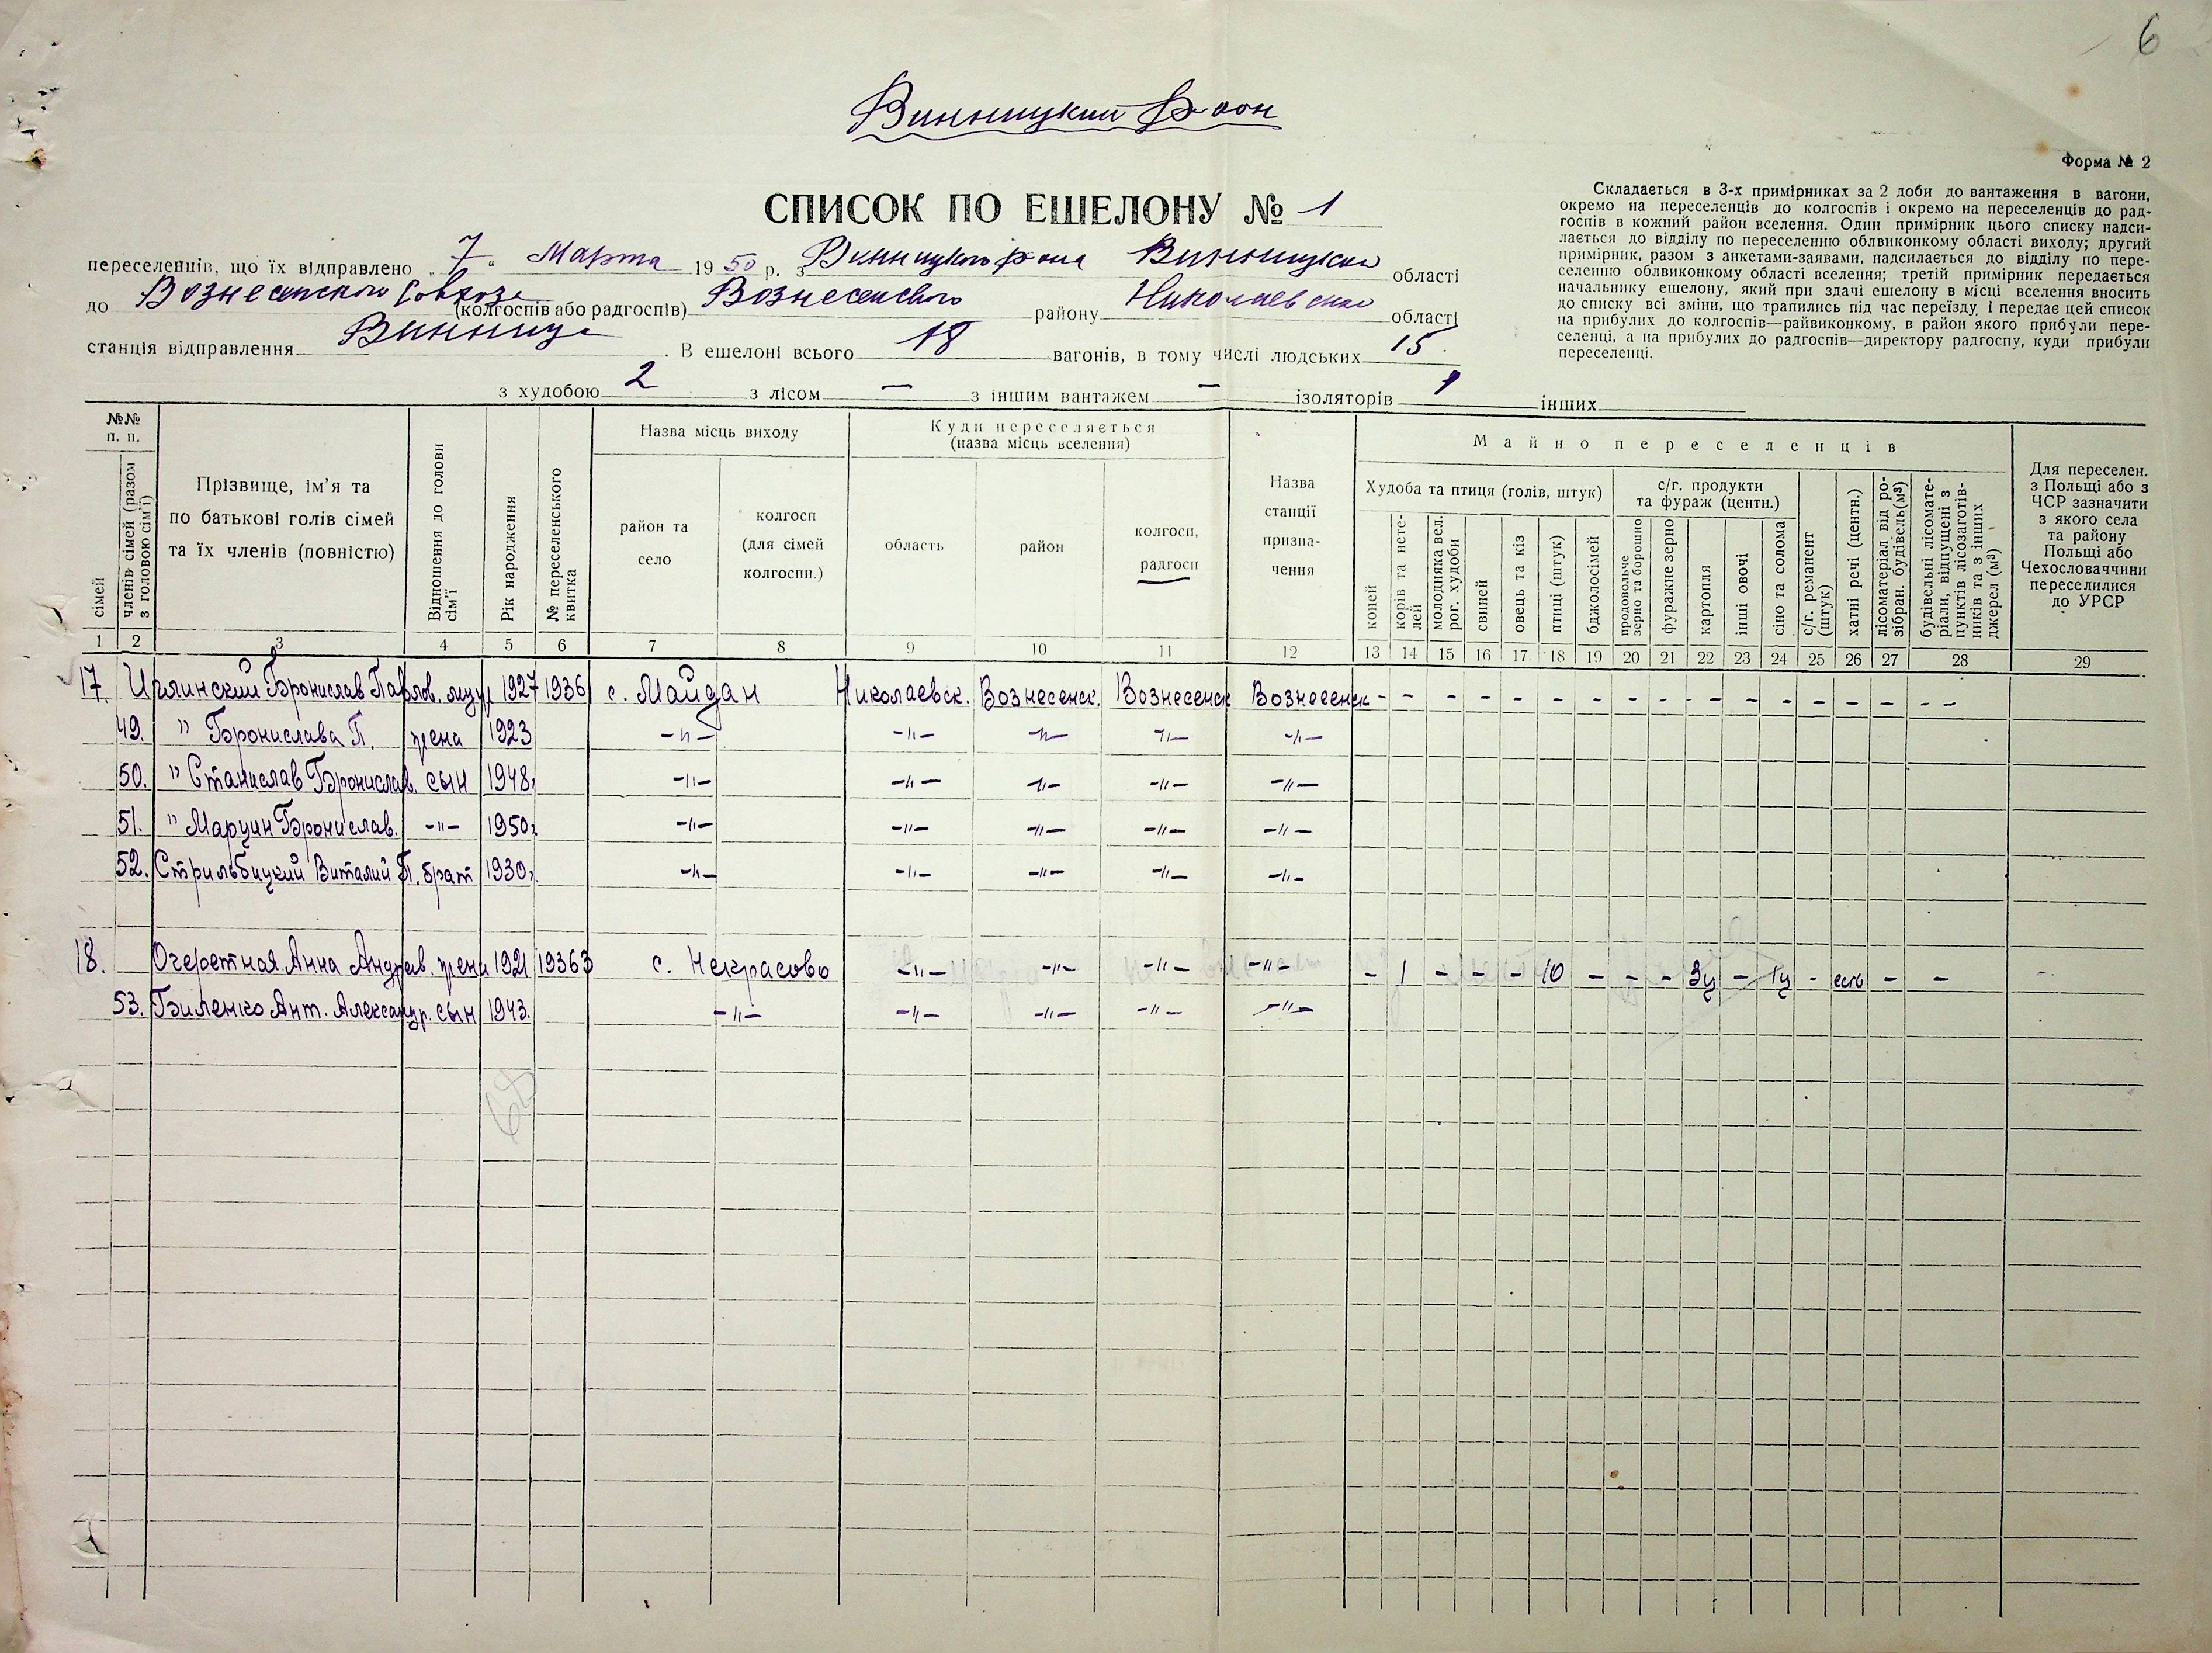 6
Винницкий р-оон
Форма № 2
СПИСОК ПО ЕШЕЛОНУ № 1
Складається в 3-х примірниках за 2 доби до вантаження в вагони,
окремо на переселенців до колгоспів і окремо на переселенців до рад-
госпів в кожний район вселення. Один примірник цього списку надси-
лається до відділу по переселенню облвиконкому області виходу; другий
примірник, разом з анкетами-заявами, надсилається до відділу по пере-
селенню облвиконкому області вселення; третій примірник передається
начальнику ешелону, який при здачі ешелону в місці вселення вносить
до списку всі зміни, що трапились під час переїзду, і передає цей список
на прибулих до колгоспів—райвиконкому, в район якого прибули пере-
селенці, а на прибулих до радгоспів—директору радгоспу, куди прибули
переселенці.
переселенців, що їх відправлено „ 7 " Марта 1950 р. з Винницкого р-она Винницкой області
до Вознесенского Совхоза (колгоспів або радгоспів) Вознесенского району Николаевской області
станція відправлення Винница. В ешелоні всього 18 вагонів, в тому числі людських 15
з худобою 2 з лісом — з іншим вантажем — ізоляторів 1 інших
№№ п. п.
сімей
членів сімей (разом з головою сім'ї)
Прізвище, ім'я та
по батькові голів сімей
та їх членів (повністю)
Відношення до голови сім'ї
Рік народження
№ переселенського квитка
Назва місць виходу
район та село
колгосп (для сімей колгоспн.)
Куди переселяється
(назва місць вселення)
область
район
колгосп, радгосп
Назва станції призна-чення
Майно переселенців
Худоба та птиця (голів, штук)
коней
корів та нете-лей
молодняка вел. рог. худоби
свиней
овець та кіз
птиці (штук)
бджолосімей
с/г. продукти та фураж (центн.)
продовольче зерно та борошно
фуражне зерно
картопля
інші овочі
сіно та солома
с/г. реманент (штук)
хатні речі (центн.)
лісоматеріал від ро-зібран. будівель (м³)
будівельні лісомате-ріали, відпущені з пунктів лісозаготів-ників та з інших джерел (м³)
Для переселен. з Польщі або з ЧСР зазначити з якого села та району Польщі або Чехословаччини переселилися до УРСР
1 2 3 4 5 6 7 8 9 10 11 12 13 14 15 16 17 18 19 20 21 22 23 24 25 26 27 28 29
17. Бронислав Павлов. муж 1927 1936 с. Майдан Николаевск. Вознесенск. Вознесенск Вознесенск - - - - - - - - - - - - - - - - -
49. " Бронислава П. жена 1923 -"- -"- -"- -"- -"-
50. " Станислав Бронислав. сын 1948. -"- -"- -"- -"- -"-
51. " Марцин Бронислав. -"- 1950г. -"- -"- -"- -"- -"-
52. Стрильбицкий Виталий П. брат 1930г. -"- -"- -"- -"- -"-
18. Очеретная Анна Андреев. жена 1921 19363 с. Некрасово -"- -"- -"- -"- - 1 - - - 10 - - - 3ц - 1ц - есть - - -
53. Биленко Ант. Александр. сын 1943. -"- -"- -"- -"- -"-